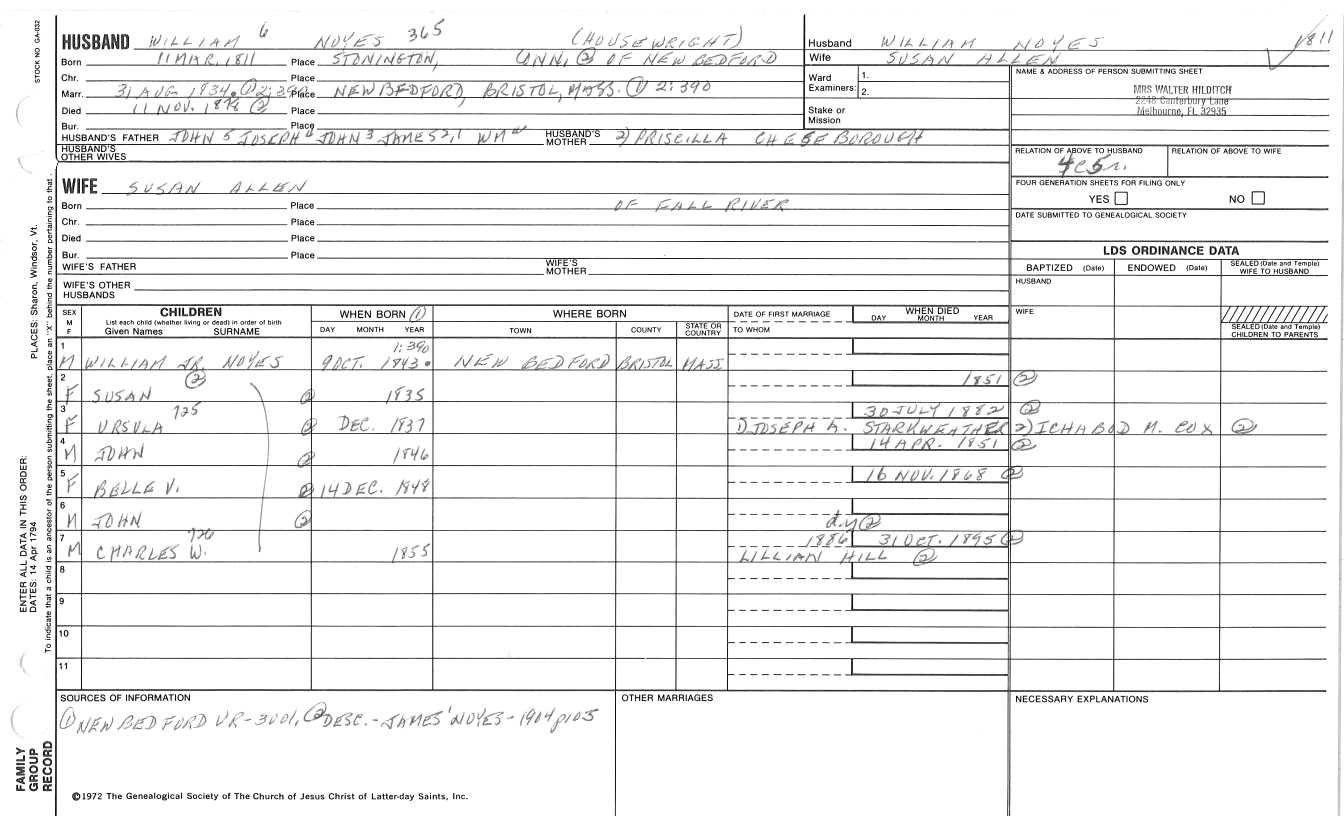 STOCK NO. GA-032
HUSBAND WILLIAM 6 NOYES 365 (HOUSEWRIGHT)
Born 11 MAR. 1811 Place STONINGTON, CONN, ② OF NEW BEDFORD
Chr. Place
Marr. 31 AUG 1834. ① 2:390 Place NEW BEDFORD, BRISTOL, MASS. ① 2:390
Died 11 NOV. 1878 ② Place
Bur. Place
HUSBAND'S FATHER JOHN 5 JOSEPH 4 JOHN 3 JAMES 2,1 WM HUSBAND'S MOTHER 2) PRISCILLA CHESEBOROUGH
HUSBAND'S OTHER WIVES
Husband WILLIAM NOYES 1811
Wife SUSAN ALLEN
Ward Examiners: 1.
2.
Stake or Mission
NAME & ADDRESS OF PERSON SUBMITTING SHEET
MRS WALTER HILDITCH
2248 Canterbury Lane
Melbourne, FL 32935
RELATION OF ABOVE TO HUSBAND RELATION OF ABOVE TO WIFE
4c5r.
FOUR GENERATION SHEETS FOR FILING ONLY
YES NO
DATE SUBMITTED TO GENEALOGICAL SOCIETY
WIFE SUSAN ALLEN
Born Place OF FALL RIVER
Chr. Place
Died Place
Bur. Place
WIFE'S FATHER WIFE'S MOTHER
WIFE'S OTHER HUSBANDS
LDS ORDINANCE DATA
BAPTIZED (Date) ENDOWED (Date) SEALED (Date and Temple) WIFE TO HUSBAND
HUSBAND
WIFE
SEALED (Date and Temple) CHILDREN TO PARENTS
SEX M F CHILDREN WHEN BORN ① WHERE BORN DATE OF FIRST MARRIAGE WHEN DIED
List each child (whether living or dead) in order of birth
Given Names SURNAME DAY MONTH YEAR TOWN COUNTY STATE OR COUNTRY TO WHOM DAY MONTH YEAR
1 1:390
M WILLIAM JR. NOYES 9 OCT. 1843. NEW BEDFORD BRISTOL MASS
2 ② 1851 ②
F SUSAN ② 1835
3 725 30 JULY 1882 ②
F URSULA ② DEC. 1837 1) JOSEPH A. STARKWEATHER 2) ICHABOD M. COX ②
4 14 APR. 1851 ②
M JOHN ② 1846
5 16 NOV. 1868 ②
F BELLE V. ② 14 DEC. 1848
6
M JOHN ② d.y ②
7 726 1886 31 OCT. 1895 ②
M CHARLES W. 1855 LILLIAN HILL ②
8
9
10
11
SOURCES OF INFORMATION
① NEW BEDFORD VR-3001, ② DESC.-JAMES' NOYES-1904 p105
OTHER MARRIAGES
NECESSARY EXPLANATIONS
©1972 The Genealogical Society of The Church of Jesus Christ of Latter-day Saints, Inc.
PLACES: Sharon, Windsor, Vt.
ENTER ALL DATA IN THIS ORDER:
DATES: 14 Apr 1794
To indicate that a child is an ancestor of the person submitting the sheet, place an "X" behind the number pertaining to that
FAMILY
GROUP
RECORD